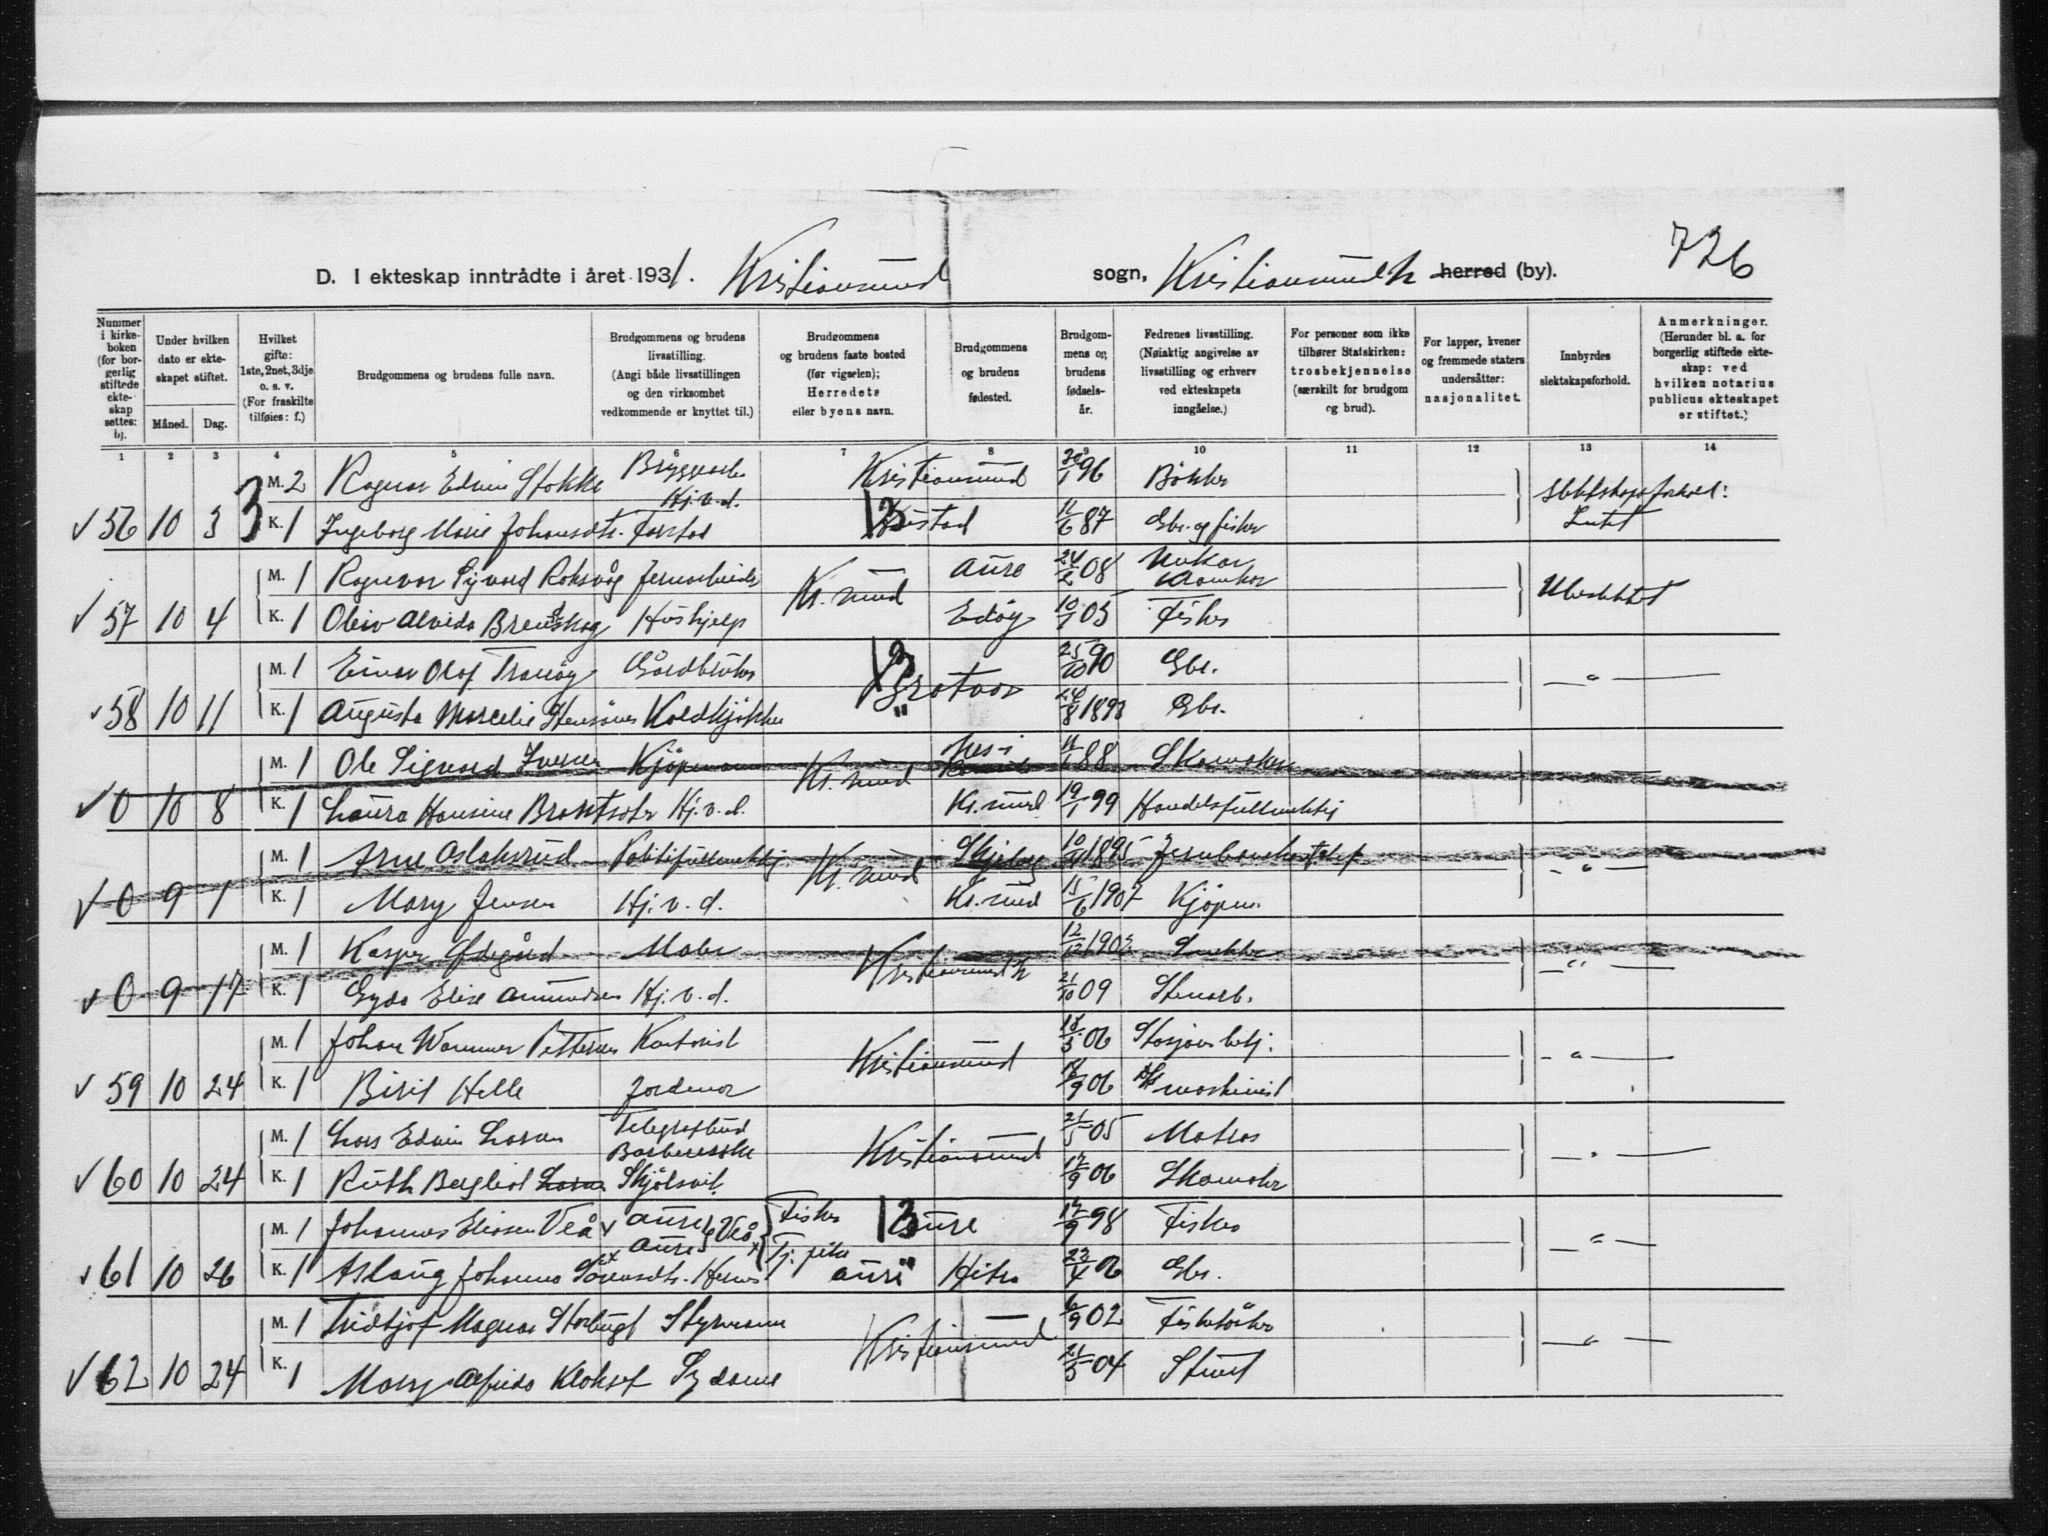 726
D. I ekteskap inntrådte i året 1931. Kristiansund sogn, Kristiansund N herred (by).
Nummer i kirke-boken (for bor-gerlig stiftede ekte-skap settes: bj.
Under hvilken dato er ekte-skapet stiftet.
Måned. Dag.
Hvilket gifte: 1ste, 2net, 3dje o. s. v. (For fraskilte tilføies: f.)
Brudgommens og brudens fulle navn.
Brudgommens og brudens livsstilling. (Angi både livsstillingen og den virksomhet vedkommende er knyttet til.)
Brudgommens og brudens faste bosted (før vigselen); Herredets eller byens navn.
Brudgommens og brudens fødested.
Brudgom-mens og brudens fødsels-år.
Fedrenes livsstilling. (Nøiaktig angivelse av livsstilling og erhverv ved ekteskapets inngåelse.)
For personer som ikke tilhører Statskirken: trosbekjennelse (særskilt for brudgom og brud).
For lapper, kvener og fremmede staters undersåtter: nasjonalitet.
Innbyrdes slektskapsforhold.
Anmerkninger. (Herunder bl. a. for borgerlig stiftede ekte-skap: ved hvilken notarius publicus ekteskapet er stiftet.)
1 2 3 4 5 6 7 8 9 10 11 12 13 14
M. 2 Ragnar Edvin Stokke Kristiansund 30/1 96 Bökker
Hj.v.d.
56 10 3 3 K. 1 Ingeborg Marie Johansdtr. 13 11/6 87 Gbr. og fisker
M. 1 Ragnvar Sigvard Roksvåg Jernarbeider Aure 24/2 08
57 10 4 K. 1 Kr.sund Edöy 10/1 05 Fisker
M. 1 Einar Olaf Gårdbruker 13 25/10 90 Gbr.
58 10 11 K. 1 Augusta Marcelie " 24/8 1893 Gbr.
M. 1 Ole Sigvard Iversen Kjöpmann Kr.sund 11/1 88 Skomaker
0 10 8 K. 1 Laura Hansine Hj.v.d. Kr.sund 19/1 99 Handelsfullmektig
M. 1 Arne Aslaksrud Politifullmektig Kr.sund 1895
0 9 1 K. 1 Mary Jensen Hj.v.d. Kr.sund 15/6 1907 Kjöpm. - " -
M. 1 Kasper Ødegård Maler Kristiansund N 12/12 Snekker
0 9 17 K. 1 Gyda Elise Amundsen Hj.v.d. 21/10 09 Stenarb. - " -
M. 1 Johan Wammer Pettersen Kontorist Kristiansund 06
59 10 24 K. 1 Birit Helle Jordmor 18/9 06 maskinist - " -
M. 1 Lars Edvin Larsen Telegrafbud Kristiansund 21/5 05 Matros
Barbererske
60 10 24 K. 1 Ruth Bergliot Larsen Skjölsvik 17/9 06 Skomaker - " -
M. 1 Johannes Eliassen Veå Aure Veå Fisker 13 Aure 17/9 98 Fisker
Aure Tj. pike
61 10 26 K. 1 Aslaug Johanna Aure " Hitra 23/4 06 Gbr. - " -
M. 1 Fridtjof Magnar Styrmann Kristiansund 6/9 02
62 10 24 K. 1 Mary Alfrida Sydame 21/5 04 Stuert - " -